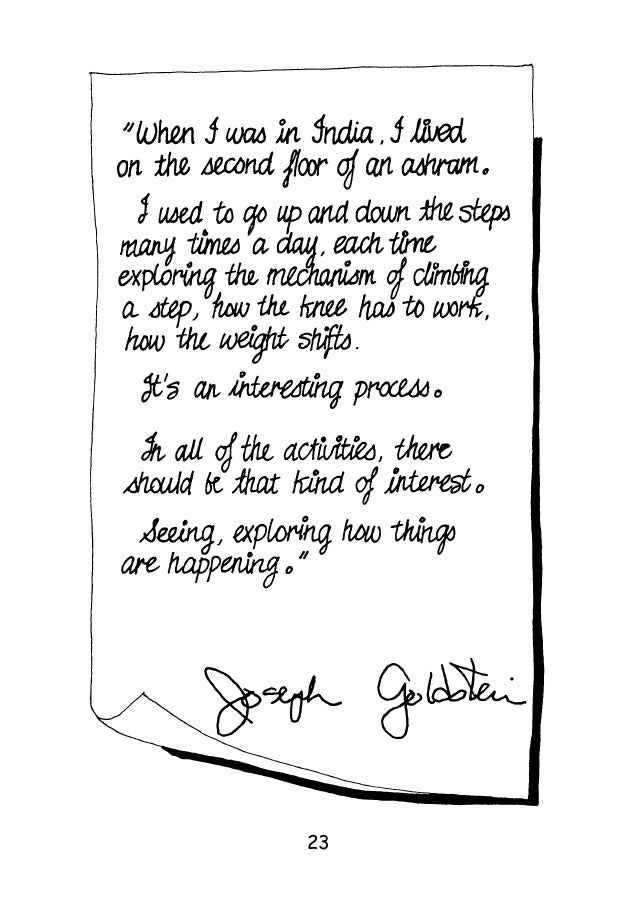 "When I was in India, I lived
on the second floor of an ashram.
I used to go up and down the steps
many times a day, each time
exploring the mechanism of climbing
a step, how the knee has to work,
how the weight shifts.
It's an interesting process.
In all of the activities, there
should be that kind of interest.
Seeing, exploring how things
are happening."
Joseph Goldstein
23